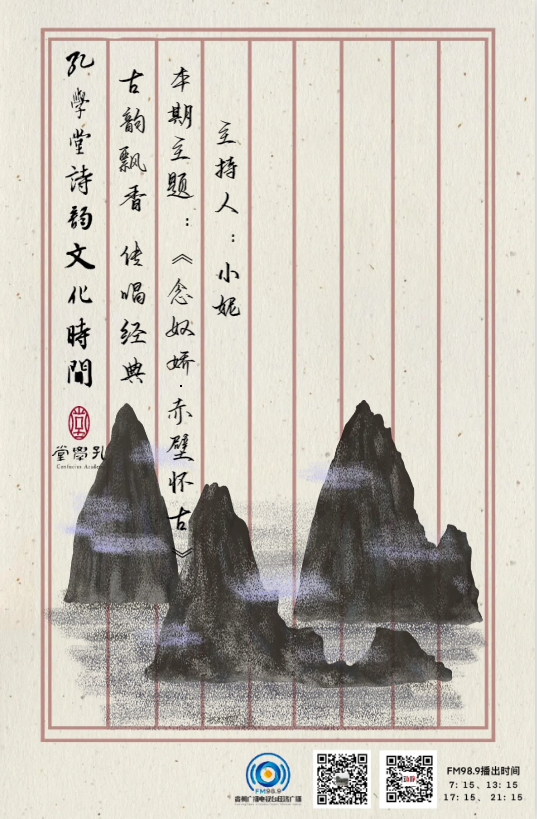 孔學堂詩韵文化時間
古韵飘香 传唱经典
本期主题：《念奴娇·赤壁怀古》
主持人：小妮
孔學堂
Confucius Academy
FM98.9
贵州广播电视台经济广播
FM98.9播出时间
7: 15、13: 15
17: 15、 21: 15